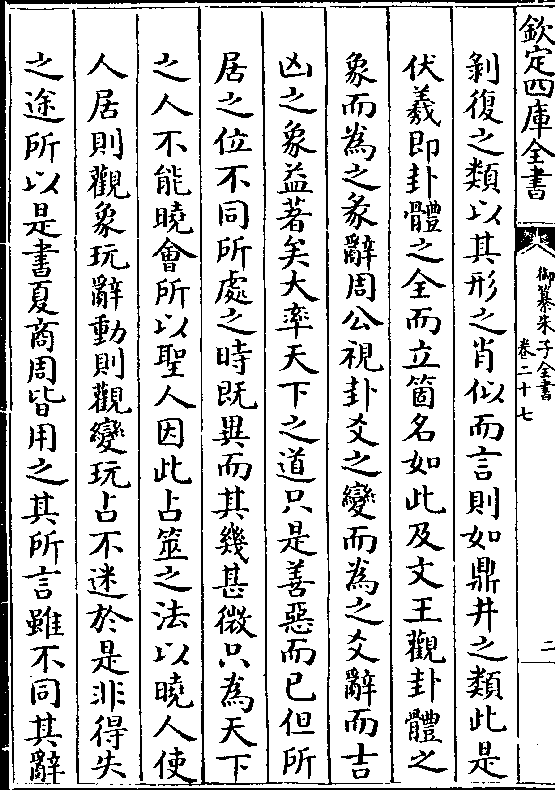 欽定四庫全書
御纂朱子全書
卷二十七
二
剝復之類以其形之肖似而言則如鼎井之類此是
伏羲即卦體之全而立箇名如此及文王觀卦體之
象而為之彖辭周公視卦爻之變而為之爻辭而吉
凶之象益著矣大率天下之道只是善惡而已但所
居之位不同所處之時既異而其幾甚微只為天下
之人不能曉會所以聖人因此占筮之法以曉人使
人居則觀象玩辭動則觀變玩占不迷於是非得失
之途所以是書夏商周皆用之其所言雖不同其辭